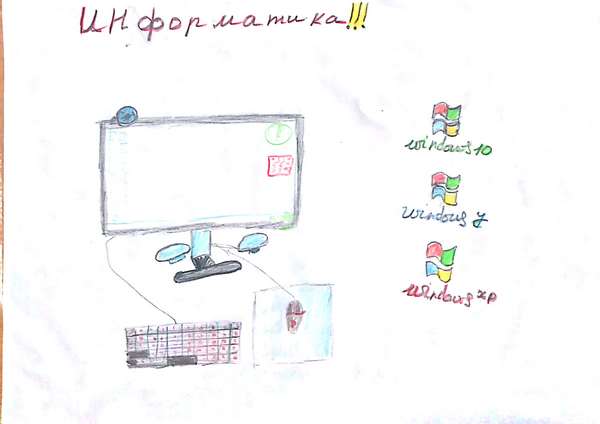 Информатика!!!
windows 10
windows 7
windows xp